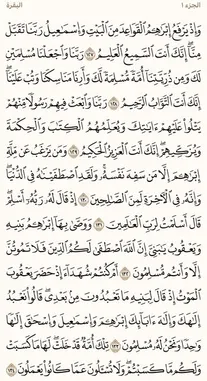 الجزء ١ البقرة
وَإِذْ يَرْفَعُ إِبْرَٰهِـۧمُ ٱلْقَوَاعِدَ مِنَ ٱلْبَيْتِ وَإِسْمَـٰعِيلُ رَبَّنَا تَقَبَّلْ
مِنَّآ إِنَّكَ أَنتَ ٱلسَّمِيعُ ٱلْعَلِيمُ ١٢٧ رَبَّنَا وَٱجْعَلْنَا مُسْلِمَيْنِ
لَكَ وَمِن ذُرِّيَّتِنَآ أُمَّةً مُّسْلِمَةً لَّكَ وَأَرِنَا مَنَاسِكَنَا وَتُبْ عَلَيْنَآ
إِنَّكَ أَنتَ ٱلتَّوَّابُ ٱلرَّحِيمُ ١٢٨ رَبَّنَا وَٱبْعَثْ فِيهِمْ رَسُولًا مِّنْهُمْ
يَتْلُوا۟ عَلَيْهِمْ ءَايَـٰتِكَ وَيُعَلِّمُهُمُ ٱلْكِتَـٰبَ وَٱلْحِكْمَةَ
وَيُزَكِّيهِمْ إِنَّكَ أَنتَ ٱلْعَزِيزُ ٱلْحَكِيمُ ١٢٩ وَمَن يَرْغَبُ عَن مِّلَّةِ
إِبْرَٰهِـۧمَ إِلَّا مَن سَفِهَ نَفْسَهُۥ وَلَقَدِ ٱصْطَفَيْنَـٰهُ فِى ٱلدُّنْيَا
وَإِنَّهُۥ فِى ٱلْـَٔاخِرَةِ لَمِنَ ٱلصَّـٰلِحِينَ ١٣٠ إِذْ قَالَ لَهُۥ رَبُّهُۥٓ أَسْلِمْ
قَالَ أَسْلَمْتُ لِرَبِّ ٱلْعَـٰلَمِينَ ١٣١ وَوَصَّىٰ بِهَآ إِبْرَٰهِـۧمُ بَنِيهِ
وَيَعْقُوبُ يَـٰبَنِىَّ إِنَّ ٱللَّهَ ٱصْطَفَىٰ لَكُمُ ٱلدِّينَ فَلَا تَمُوتُنَّ
إِلَّا وَأَنتُم مُّسْلِمُونَ ١٣٢ أَمْ كُنتُمْ شُهَدَآءَ إِذْ حَضَرَ يَعْقُوبَ
ٱلْمَوْتُ إِذْ قَالَ لِبَنِيهِ مَا تَعْبُدُونَ مِنۢ بَعْدِى قَالُوا۟ نَعْبُدُ
إِلَـٰهَكَ وَإِلَـٰهَ ءَابَآئِكَ إِبْرَٰهِـۧمَ وَإِسْمَـٰعِيلَ وَإِسْحَـٰقَ إِلَـٰهًا
وَٰحِدًا وَنَحْنُ لَهُۥ مُسْلِمُونَ ١٣٣ تِلْكَ أُمَّةٌ قَدْ خَلَتْ لَهَا مَا كَسَبَتْ
وَلَكُم مَّا كَسَبْتُمْ وَلَا تُسْـَٔلُونَ عَمَّا كَانُوا۟ يَعْمَلُونَ ١٣٤